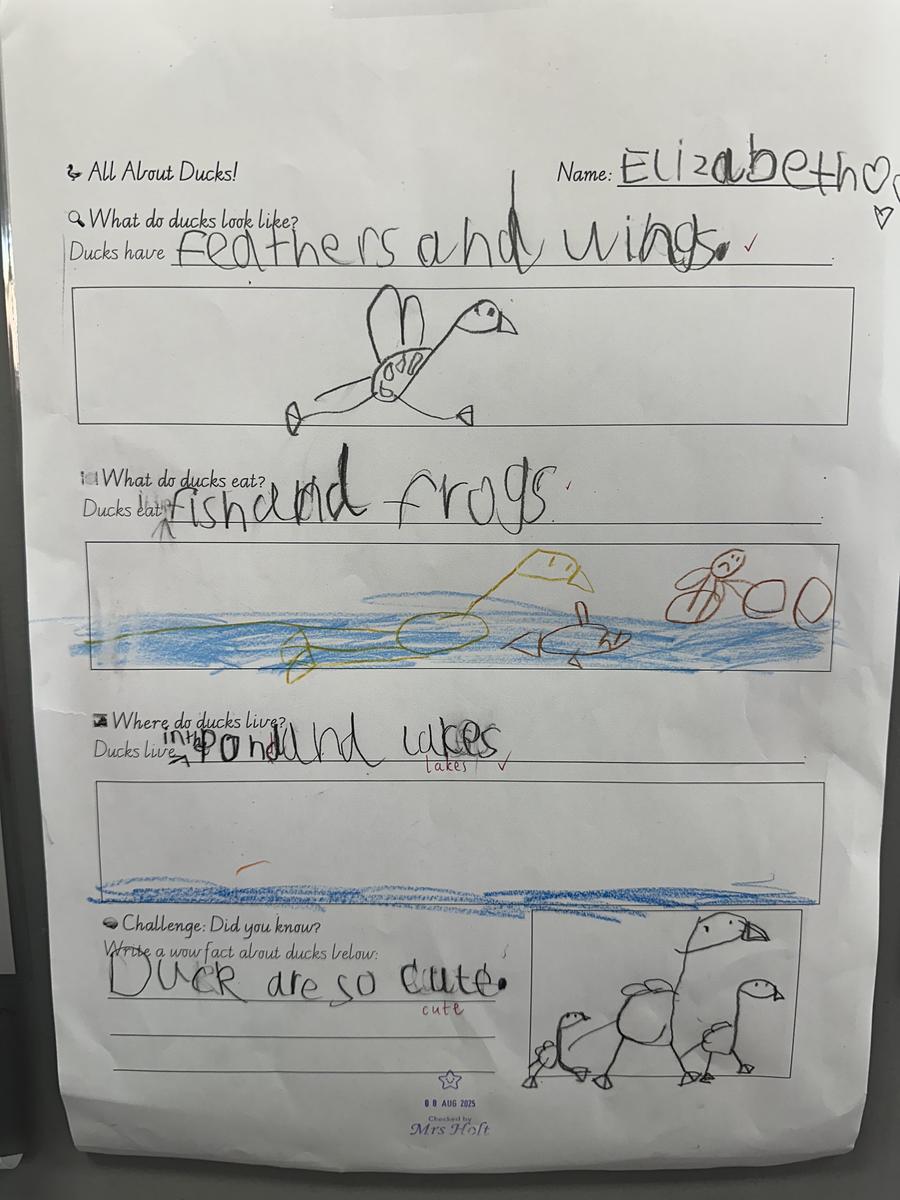 All About Ducks!
Name: Elizabeth
What do ducks look like?
Ducks have feathers and wings.
What do ducks eat?
Ducks eat fish and frogs.
Where do ducks live?
Ducks live in the pond and lakes
lakes
Challenge: Did you know?
Write a wow fact about ducks below:
Duck are so cute.
cute
08 AUG 2025
Checked by
Mrs Holt